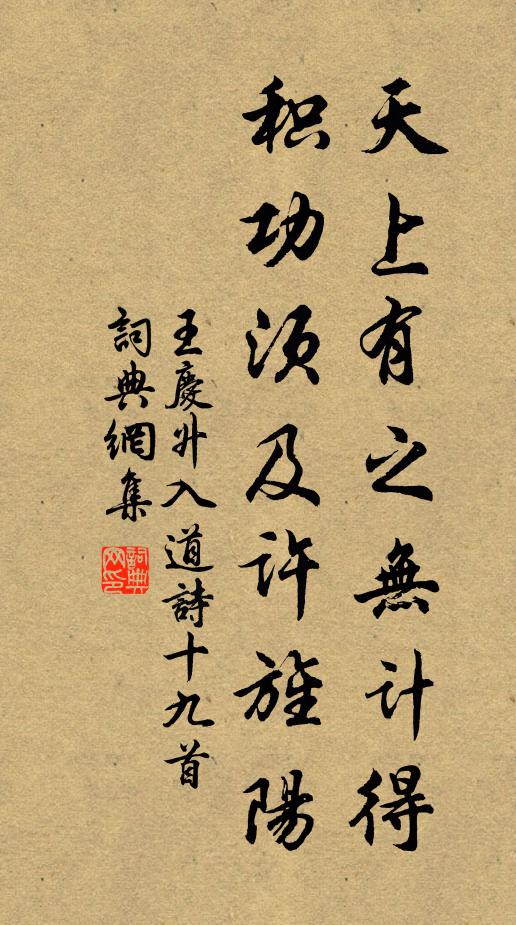 天上有之無計得
积功须及許旌陽
王慶升入道詩十九首
詞典網集
詞典网印